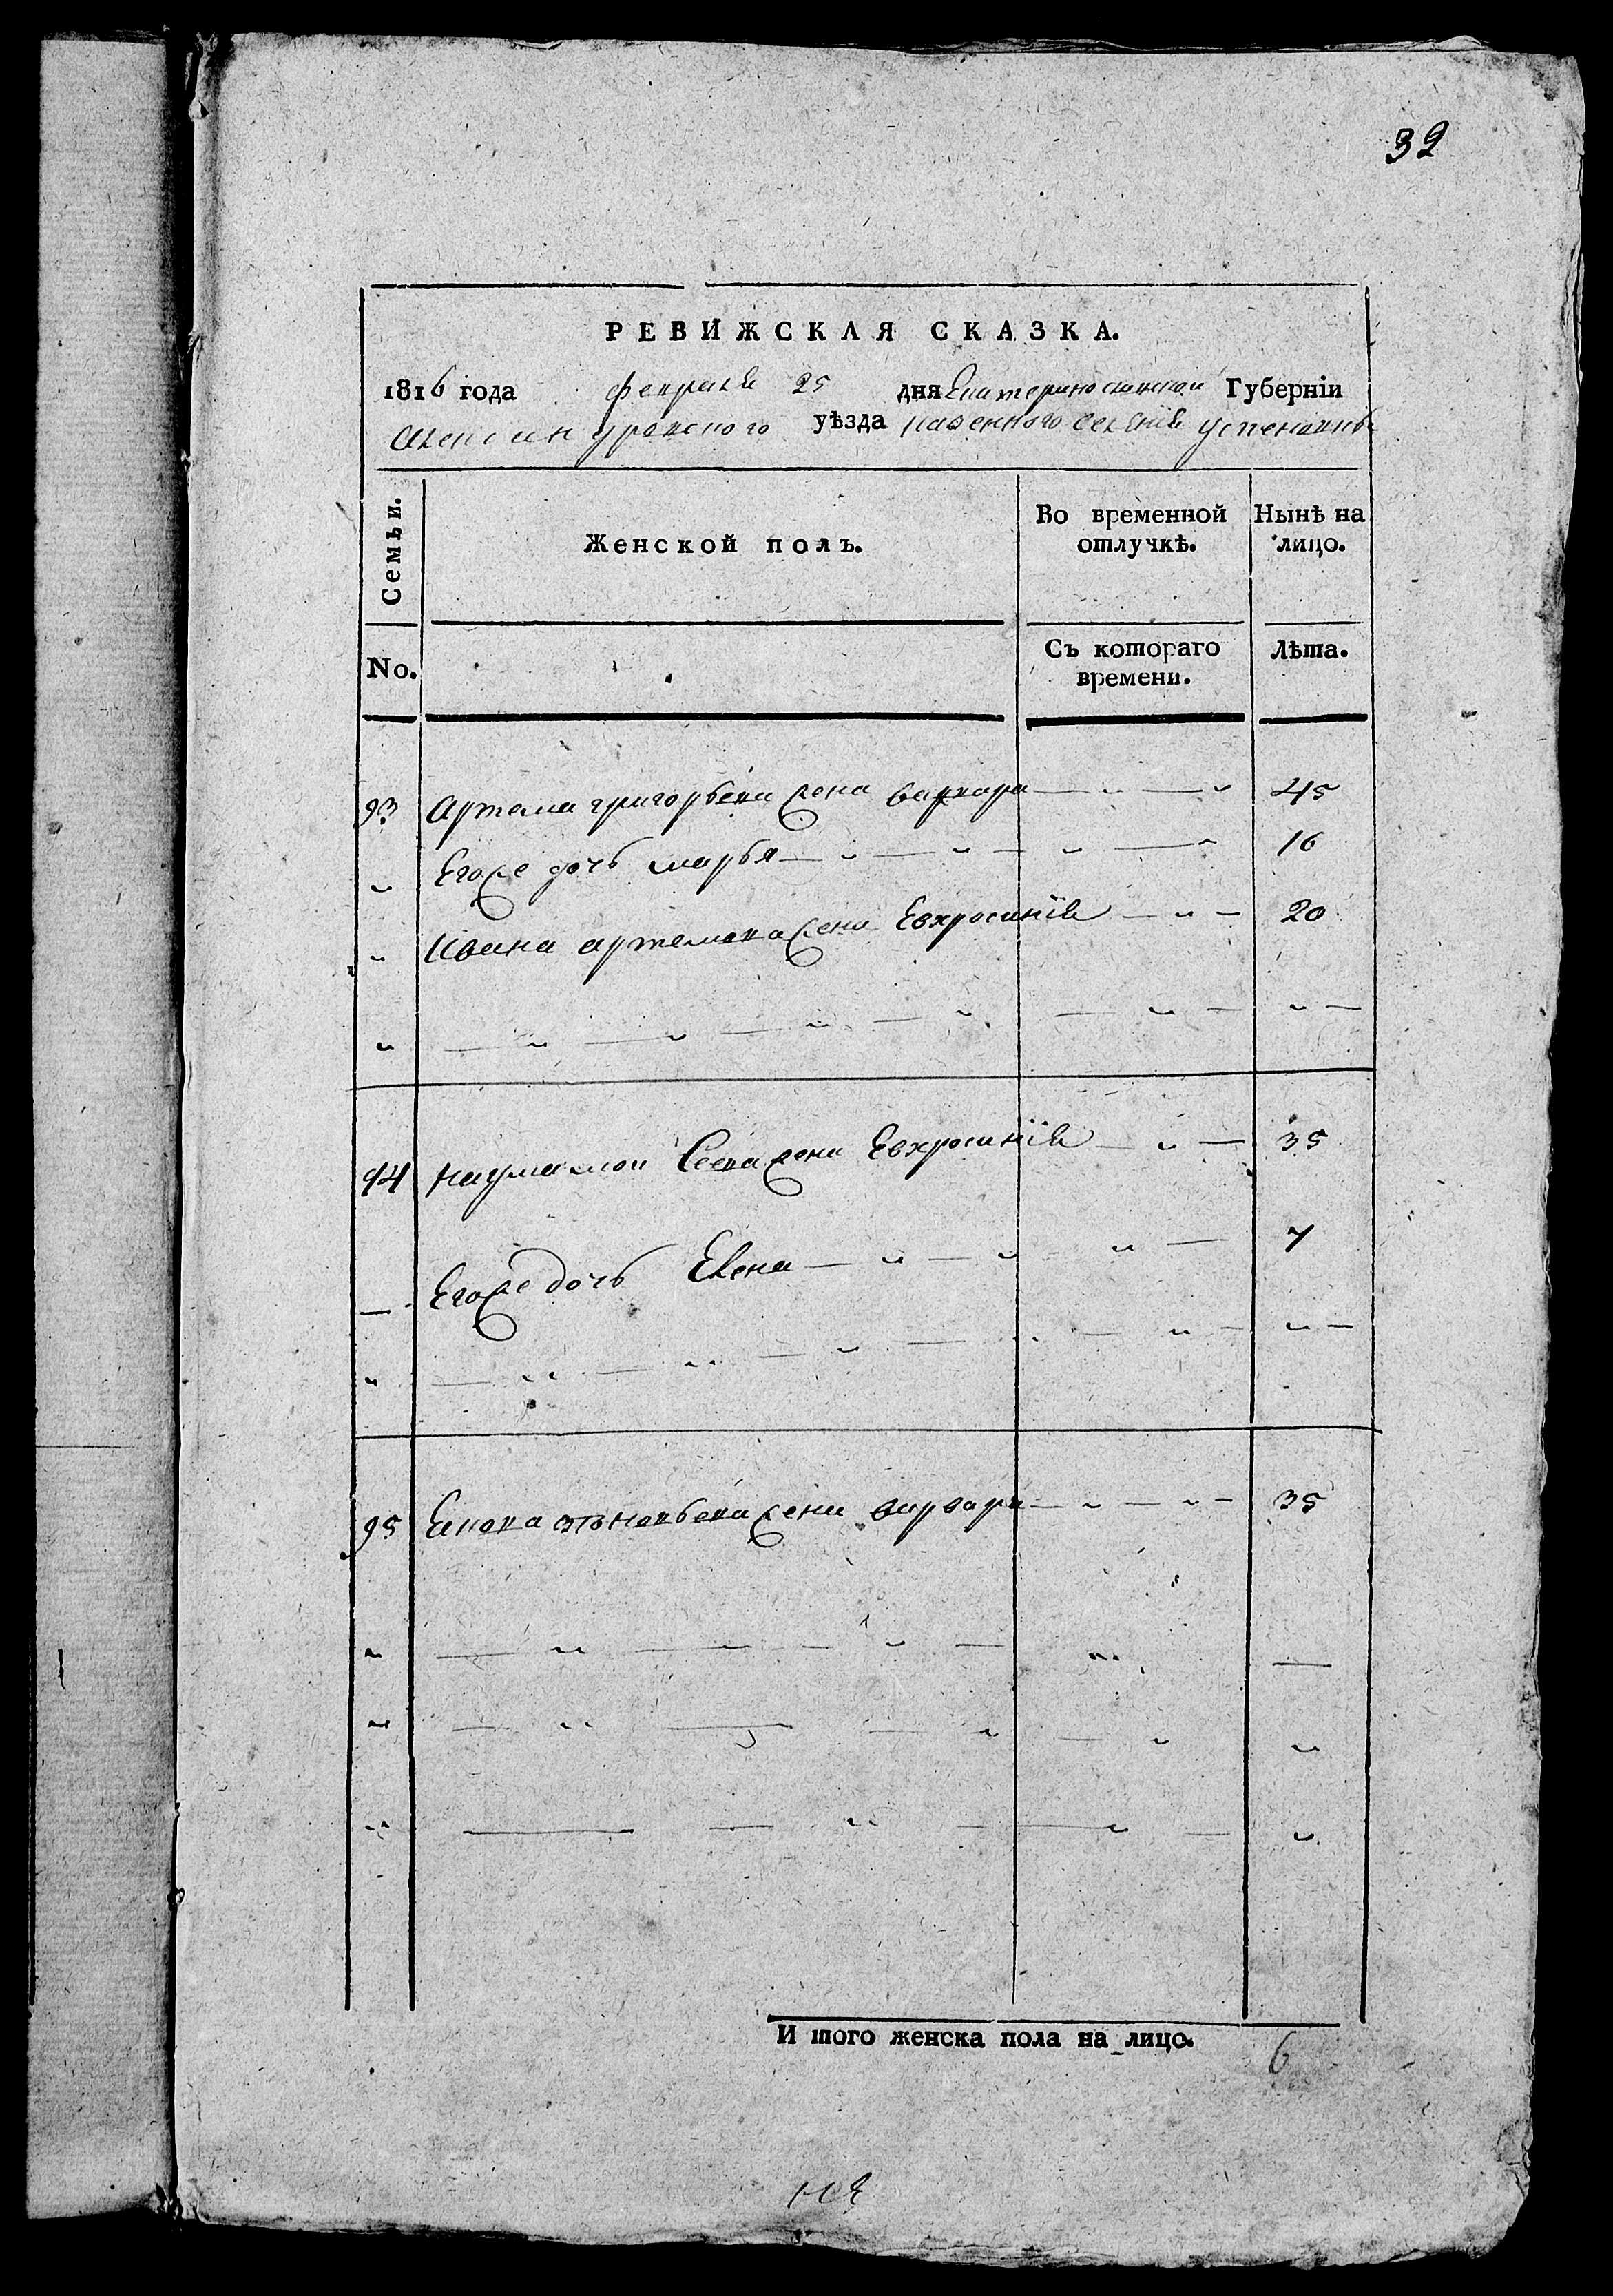 32
РЕВИЖСКАЯ СКАЗКА.
1816 года февраля 25 дня Екатеринославской Губерніи
Александровского уѣзда казенного селенія Успеновки
Семьи.
Женской полъ.
Во временной отлучкѣ.
Нынѣ на лицо.
No.
Съ котораго времени.
Лѣта.
93 Артема григорьева жена варвара 45
Егоже дочь марья 16
Ивана артемова жена Евхросинія 20
94 наума жена Евхросинія 35
Егоже дочь Елена 7
95 жена варвара 35
И того женска пола на лицо. 6